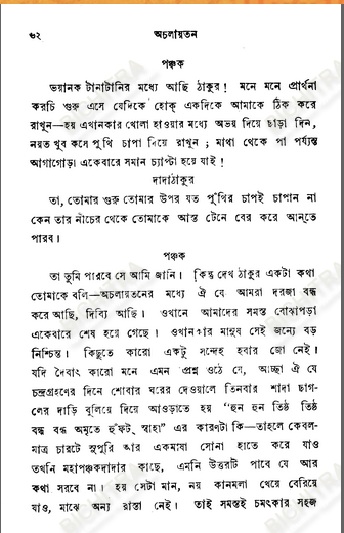 ৩২ অচলায়তন
পঞ্চক
ভয়ানক টানাটানির মধ্যে আছি ঠাকুর! মনে মনে প্রার্থনা
করচি গুরু এসে যেদিকে হোক্ একদিকে আমাকে ঠিক করে
রাখুন—হয় এখানকার খোলা হাওয়ার মধ্যে অভয় দিয়ে ছাড়া দিন,
নয়ত খুব কসে পুঁথি চাপা দিয়ে রাখুন; মাথা থেকে পা পর্য্যন্ত
আগাগোড়া একেবারে সমান চ্যাপ্টা হয়ে যাই!
দাদাঠাকুর
তা, তোমার গুরু তোমার উপর যত পুঁথির চাপই চাপান না
কেন তার নীচের থেকে তোমাকে আস্ত টেনে বের করে আন্‌তে
পারব।
পঞ্চক
তা তুমি পারবে সে আমি জানি। কিন্তু দেখ ঠাকুর একটা কথা
তোমাকে বলি—অচলায়তনের মধ্যে ঐ যে আমরা দরজা বন্ধ
করে আছি, দিব্যি আছি। ওখানে আমাদের সমস্ত বোঝাপড়া
একেবারে শেষ হয়ে গেছে। ওখানকার মানুষ সেই জন্যে বড়
নিশ্চিন্ত। কিছুতে কারো একটু সন্দেহ হবার জো নেই।
যদি দৈবাৎ কারো মনে এমন প্রশ্ন ওঠে যে, আচ্ছা ঐ যে
চন্দ্রগ্রহণের দিনে শোবার ঘরের দেওয়ালে তিনবার শাদা ছাগ-
লের দাড়ি বুলিয়ে দিয়ে আওড়াতে হয় “হুন হুন তিষ্ঠ তিষ্ঠ
বন্ধ বন্ধ অমৃতে হূঁফট্ স্বাহা” এর কারণটা কি—তাহলে কেবল-
মাত্র চারটে সুপুরি আর একমাষা সোনা হাতে করে যাও
তখনি মহাপঞ্চকদাদার কাছে, এমনি উত্তরটি পাবে যে আর
কথা সরবে না। হয় সেটা মান, নয় কানমলা খেয়ে বেরিয়ে
যাও, মাঝে অন্য রাস্তা নেই। তাই সমস্তই চমৎকার সহজ